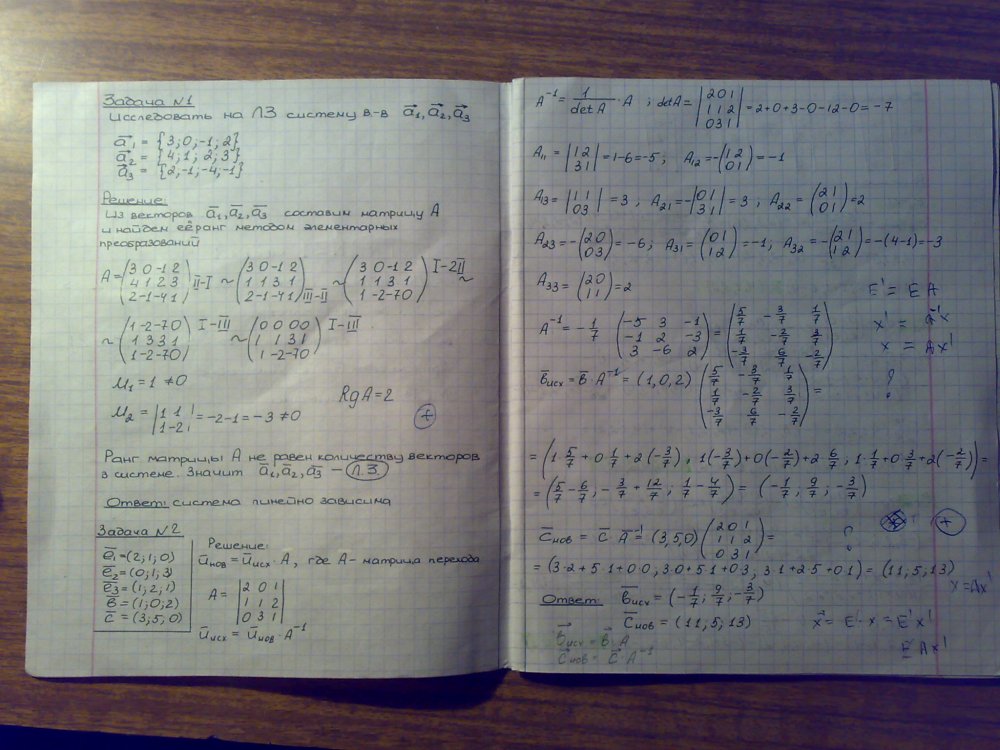 Задача N1
Исследовать на ЛЗ систему в-в a₁, a₂, a₃
a₁ = {3; 0; -1; 2}
a₂ = {4; 1; 2; 3}
a₃ = {2; -1; -4; -1}
Решение:
Из векторов a₁, a₂, a₃ составим матрицу A
и найдем её ранг методом элементарных
преобразований
A = (3 0 -1 2 / 4 1 2 3 / 2 -1 -4 1) II-I ~ (3 0 -1 2 / 1 1 3 1 / 2 -1 -4 1) III-II ~ (3 0 -1 2 / 1 1 3 1 / 1 -2 -7 0) I-2II ~
~ (1 -2 -7 0 / 1 3 3 1 / 1 -2 -7 0) I-III ~ (0 0 0 0 / 1 1 3 1 / 1 -2 -7 0) I-III
M₁ = 1 ≠ 0
RgA = 2
M₂ = |1 1 / 1 -2| = -2-1 = -3 ≠ 0
+
Ранг матрицы A не равен количеству векторов
в системе. Значит a₁, a₂, a₃ – Л.З
Ответ: система линейно зависима
Задача N2
e₁ = (2; 1; 0)
e₂ = (0; 1; 3)
e₃ = (1; 2; 1)
b = (1; 0; 2)
c = (3; 5; 0)
Решение:
u нов = u исх · A, где A - матрица перехода
A = |2 0 1 / 1 1 2 / 0 3 1|
u исх = u нов · A⁻¹
A⁻¹ = 1/detA · A ; detA = |2 0 1 / 1 1 2 / 0 3 1| = 2+0+3-0-12-0 = -7
A₁₁ = |1 2 / 3 1| = 1-6 = -5; A₁₂ = -(1 2 / 0 1) = -1
A₁₃ = |1 1 / 0 3| = 3, A₂₁ = -|0 1 / 3 1| = 3, A₂₂ = (2 1 / 0 1) = 2
A₂₃ = -(2 0 / 0 3) = -6; A₃₁ = (0 1 / 1 2) = -1; A₃₂ = -(2 1 / 1 2) = -(4-1) = -3
A₃₃ = (2 0 / 1 1) = 2
E' = E A
A⁻¹ = -1/7 (-5 3 -1 / -1 2 -3 / 3 -6 2) = (5/7 -3/7 1/7 / 1/7 -2/7 3/7 / -3/7 6/7 -2/7)
x' = a'x
x = Ax'
b исх = b · A⁻¹ = (1, 0, 2) (5/7 -3/7 1/7 / 1/7 -2/7 3/7 / -3/7 6/7 -2/7) =
?
= (1 5/7 + 0 1/7 + 2(-3/7), 1(-3/7) + 0(-2/7) + 2 6/7, 1·1/7 + 0 3/7 + 2(-2/7)) =
= (5/7 - 6/7; -3/7 + 12/7; 1/7 - 4/7) = (-1/7; 9/7; -3/7)
+
c нов = c · A⁻¹ = (3, 5, 0) (2 0 1 / 1 1 2 / 0 3 1) =
?
= (3·2 + 5·1 + 0·0, 3·0 + 5·1 + 0·3, 3·1 + 2·5 + 0·1) = (11, 5, 13)
x = Ax'
Ответ: b исх = (-1/7; 9/7; -3/7)
c нов = (11; 5; 13)
x = E · x = E'x'
b исх = b · A
E A x'
c нов = c · A⁻¹